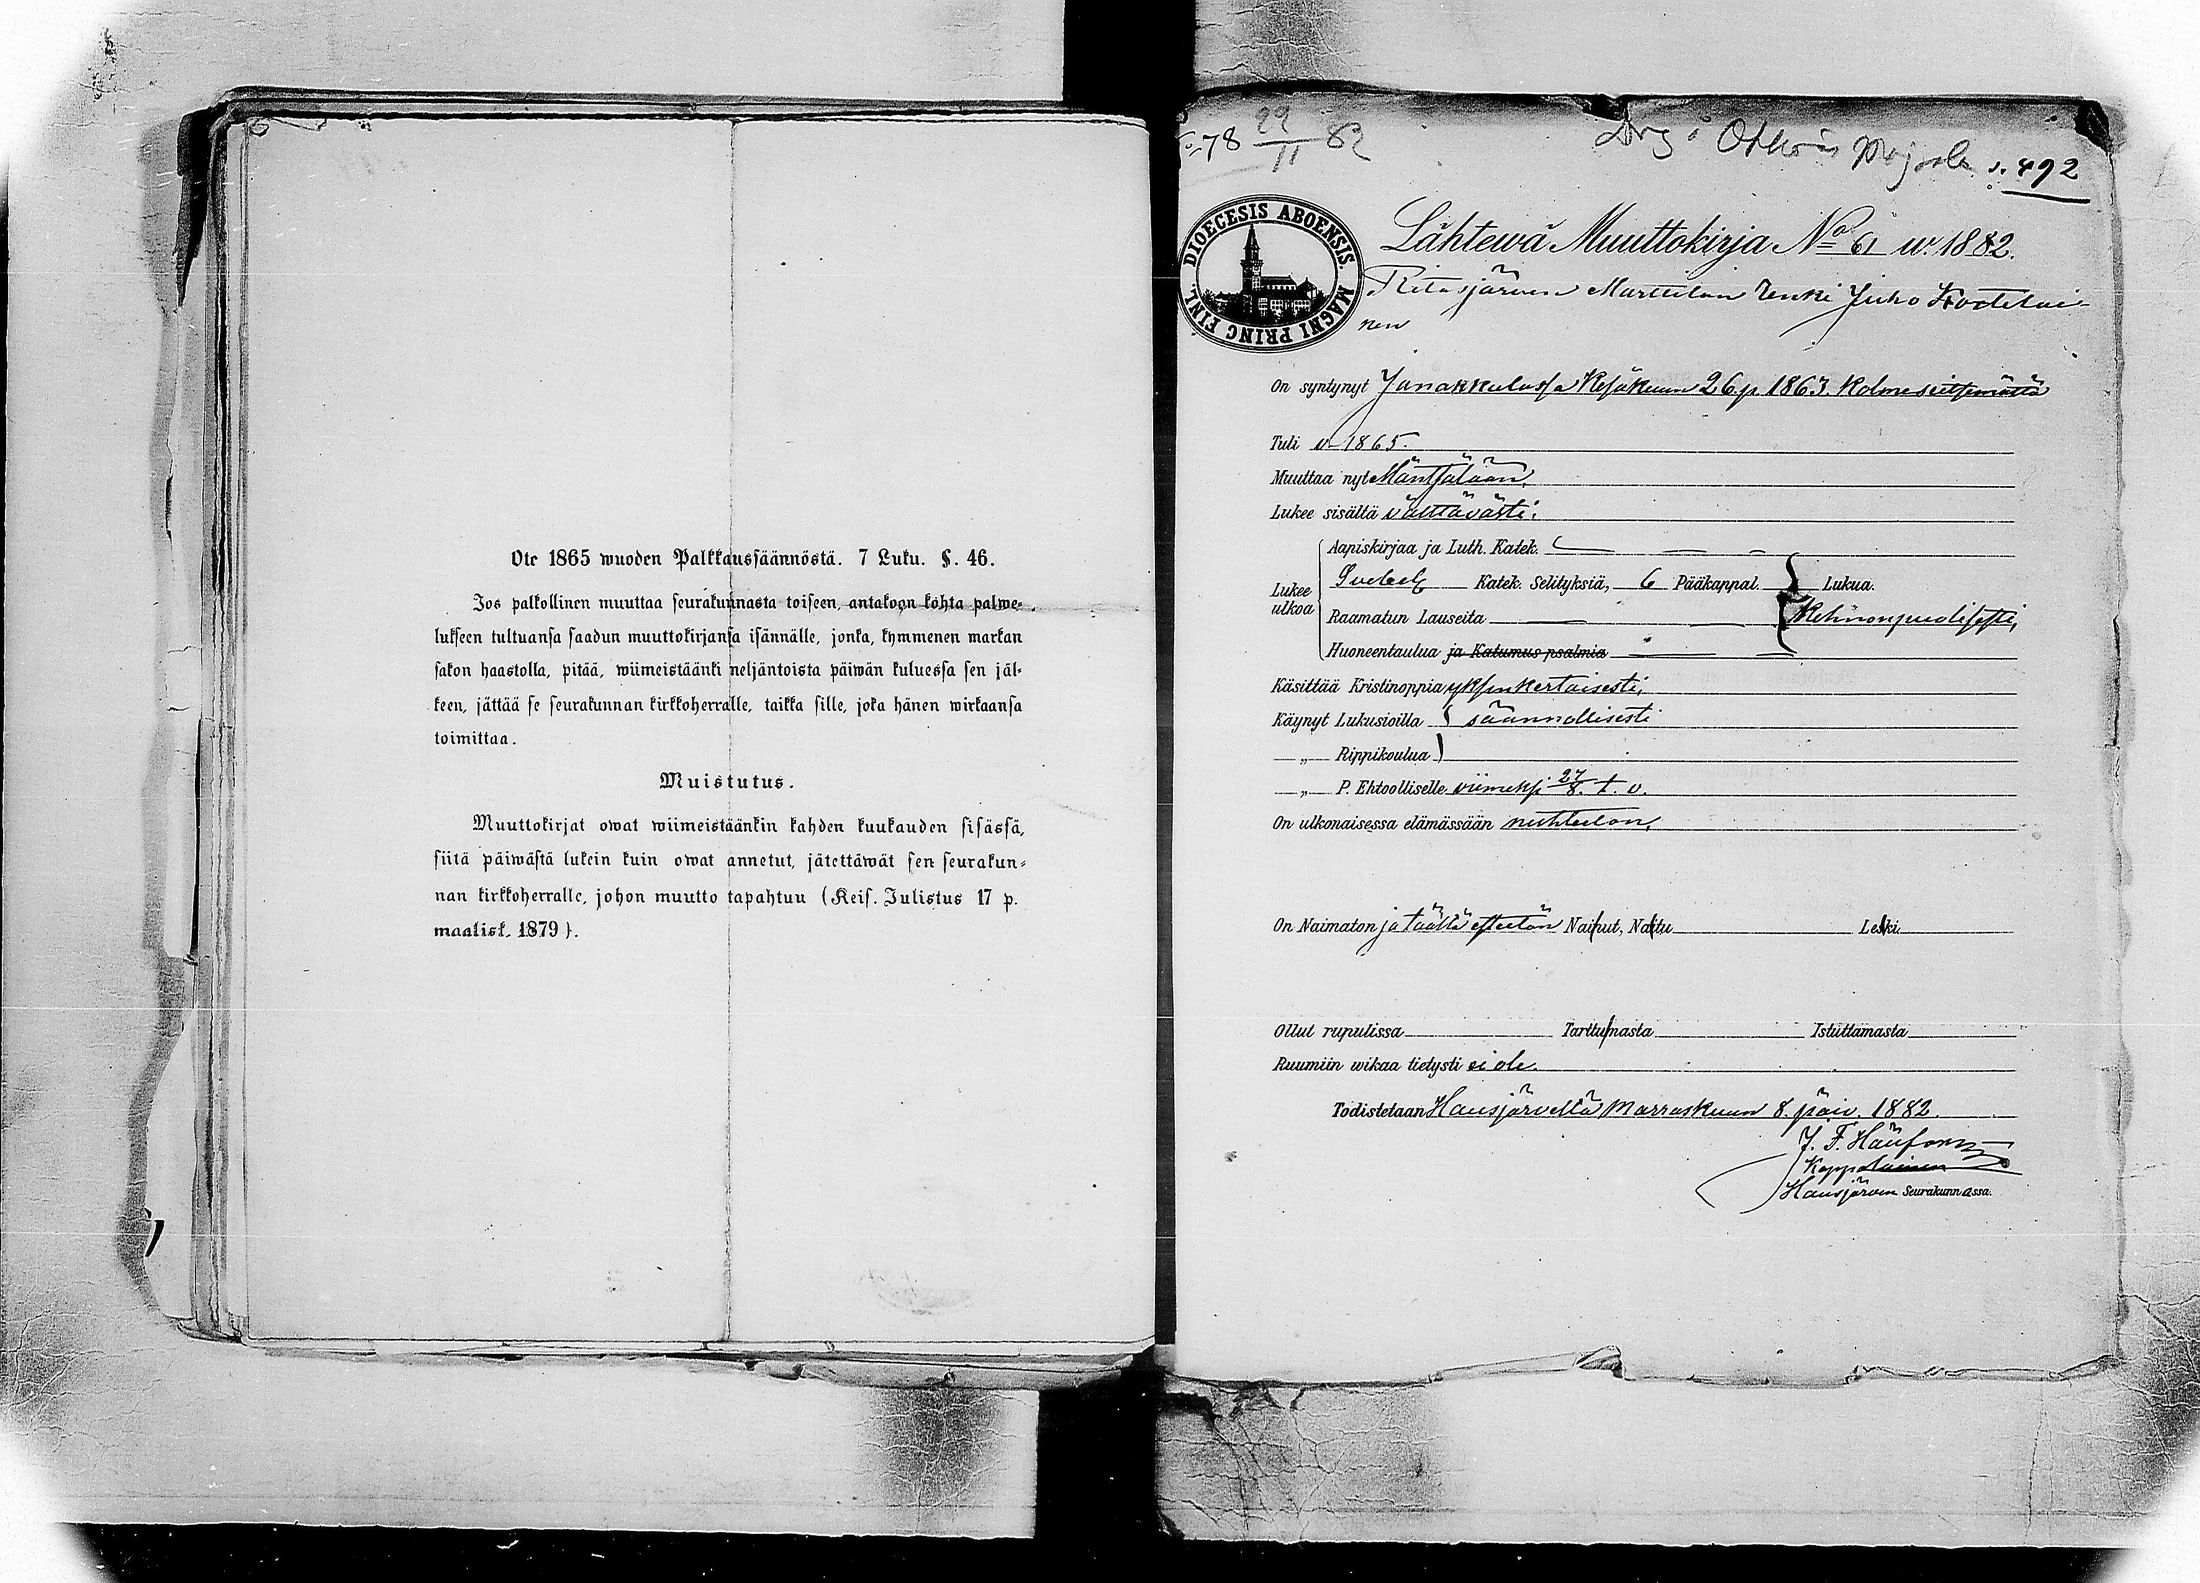 Ote 1865 wuoden Palkkaussäännöstä. 7 Luku. §. 46.
Jos palkollinen muuttaa seurakunnasta toiseen, antakoon kohta palwe-
lukseen tultuansa saadun muuttokirjansa isännälle, jonka, kymmenen markan
sakon haastolla, pitää, wiimeistäänki neljäntoista päiwän kuluessa sen jäl-
keen, jättää se seurakunnan kirkkoherralle, taikka sille, joka hänen wirkaansa
toimittaa.
Muistutus.
Muuttokirjat owat wiimeistäänkin kahden kuukauden sisässä,
siitä päiwästä lukein kuin owat annetut, jätettäwät sen seurakun-
nan kirkkoherralle, johon muutto tapahtuu (Keis. Julistus 17 p.
maalisk. 1879).
78 29/11 82
s. 492
DIOECESIS ABOENSIS. MAGNI PRINC FINL.
Lähtewä Muuttokirja No 61 w. 1882.
Marttilan Renki Juho
nen
On syntynyt Janakkalassa Kesäkuun 26 p. 1863. Kolmeseitsemättä
Tuli v. 1865.
Muuttaa nyt Mäntsälään.
Lukee sisältä välttävästi.
Lukee ulkoa
Aapiskirjaa ja Luth. Katek.
Svebel. Katek. Selityksiä, 6 Pääkappal. Lukua.
Raamatun Lauseita Kehnonpuolisesti,
Huoneentaulua ja Katumus psalmia
Käsittää Kristinoppia yksinkertaisesti,
Käynyt Lukusioilla säännöllisesti
—„— Rippikoulua
—„— P. Ehtoolliselle viimeksi 27/8. t. v.
On ulkonaisessa elämässään nuhteeton,
On Naimaton ja täältä esteetön Nainut, Naitu Leski
Ollut rupulissa Tarttumasta Istuttamasta
Ruumiin wikaa tietysti ei ole.
Todistetaan Hausjärvellä Marraskuun 8. päiv. 1882.
J. F.
Kappalainen
Hausjärven Seurakunnassa.